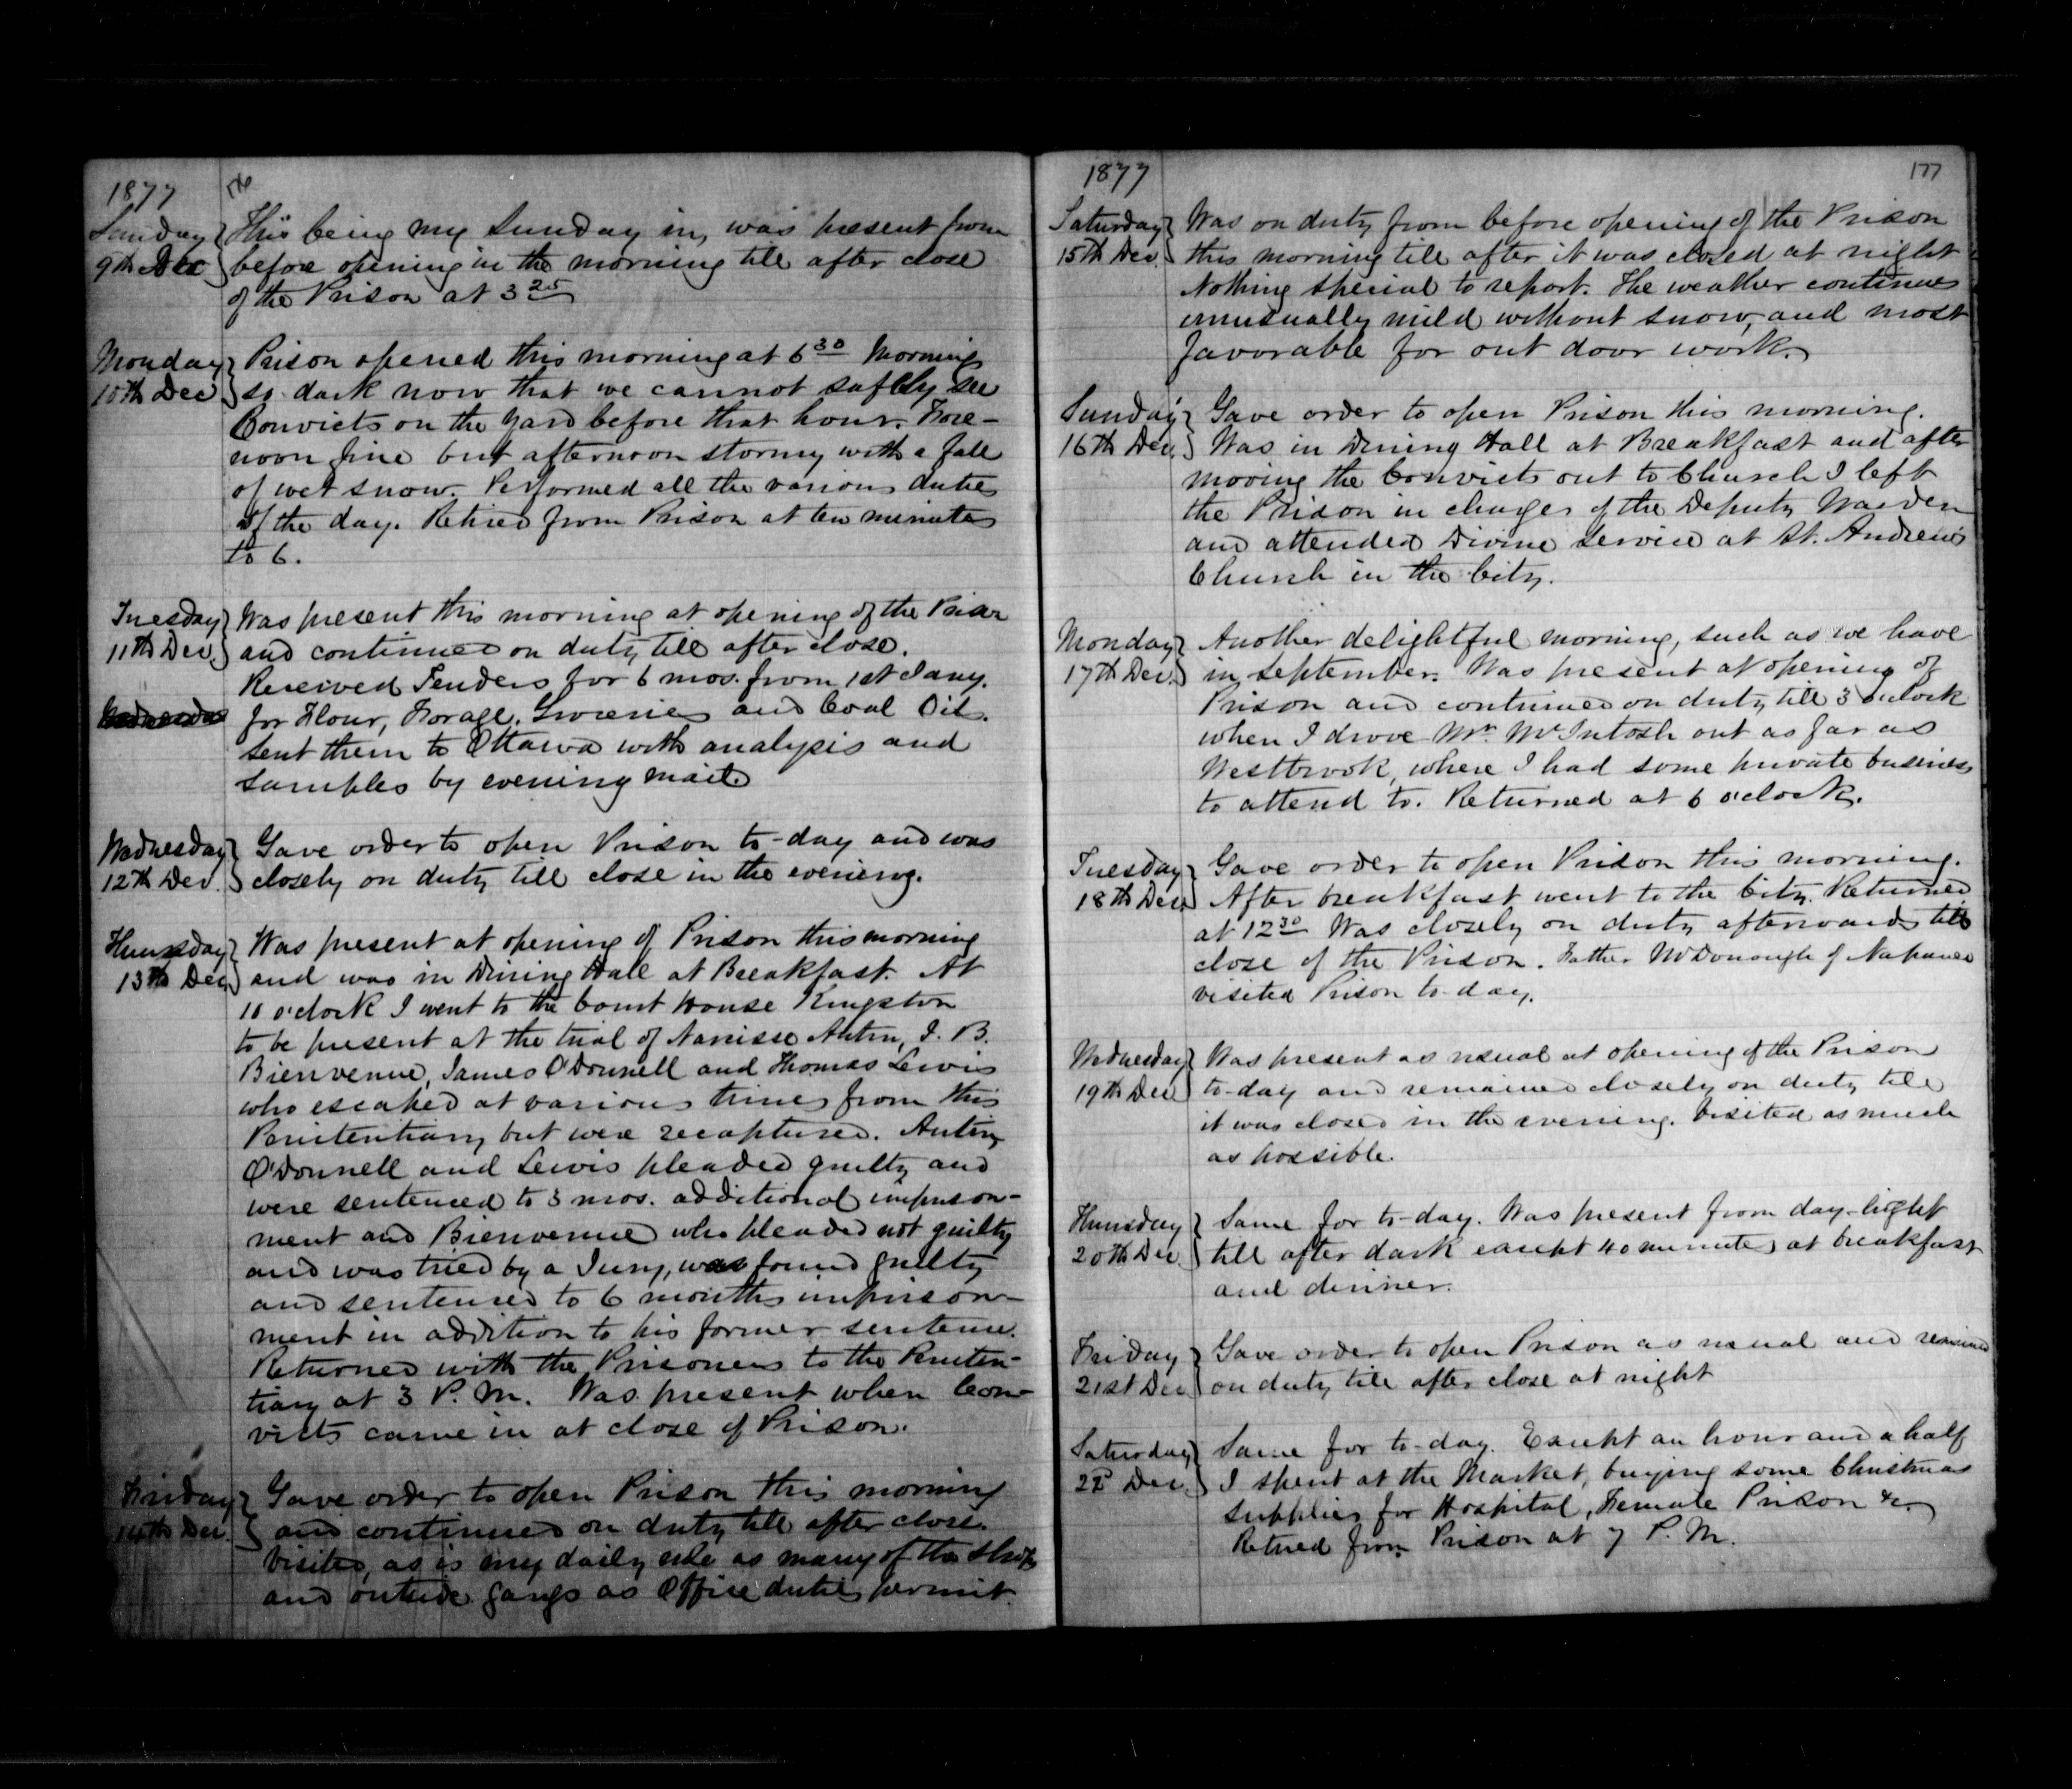 1877
176
Sunday 9th Dec } This being my Sunday in, was present from
before opening in the morning till after close
of the Prison at 3 25
Monday 10th Dec } Prison opened this morning at 6 30 Morning
so dark now that we cannot saftly see
Convicts on the yard before that hour. Fore-
noon fine but afternoon stormy with a fall
of wet snow. Performed all the various duties
of the day. Retired from Prison at ten minutes
to 6.
Tuesday 11th Dec. } Was present this morning at opening of the Prison
and continued on duty till after close.
Received Tenders for 6 mos. from 1st Jany.
for Flour, Forage, Groceries and Coal Oil.
Sent them to Ottawa with analysis and
samples by evening mail.
Wednesday 12th Dec. } Gave order to open Prison to-day and was
closely on duty till close in the evening.
Thursday 13th Dec } Was present at opening of Prison this morning
and was in Dining Hall at Breakfast. At
10 o'clock I went to the Court House Kingston
to be present at the trial of Narcisse J. B.
Bienvenue, James O'Donnell and Thomas Lewis
who escaped at various times from this
Penitentiary but were recaptured.
O'Donnell and Lewis pleaded guilty and
were sentenced to 3 mos. additional imprison-
ment and Bienvenue who pleaded not guilty
and was tried by a Jury, was found guilty
and sentenced to 6 months imprison-
ment in addition to his former sentence.
Returned with the Prisoners to the Peniten-
tiary at 3 P.M. Was present when Con-
victs came in at close of Prison.
Friday 14th Dec. } Gave order to open Prison this morning
and continued on duty till after close.
Visited, as is my daily rule as many of the shops
and outside gangs as Office duties permit.
1877
177
Saturday 15th Dec. } Was on duty from before opening of the Prison
this morning till after it was closed at night
Nothing special to report. The weather continues
unusually mild without snow, and most
favorable for out door work.
Sunday 16th Dec. } Gave order to open Prison this morning.
Was in Dining Hall at Breakfast and after
moving the Convicts out to Church I left
the Prison in charge of the Deputy Warden
and attended Divine Service at St. Andrew's
Church in the City.
Monday 17th Dec. } Another delightful morning, such as we have
in September. Was present at opening of
Prison and continued on duty till 3 o'clock
when I drove Mr. McIntosh out as far as
Westbrook, where I had some private business
to attend to. Returned at 6 o'clock.
Tuesday 18th Dec. } Gave order to open Prison this morning.
After breakfast went to the City. Returned
at 12 30 Was closely on duty afterwards till
close of the Prison. Father McDonough of Napanee
visited Prison to-day.
Wednesday 19th Dec } Was present as usual at opening of the Prison
to-day and remained closely on duty till
it was closed in the evening. Visited as much
as possible.
Thursday 20th Dec. } Same for to-day. Was present from day-light
till after dark except 40 minutes at breakfast
and dinner.
Friday 21st Dec } Gave order to open Prison as usual and remained
on duty till after close at night
Saturday 22d Dec. } Same for to-day. Except an hour and a half
I spent at the Market, buying some Christmas
supplies for Hospital, Female Prison &c.
Retired from Prison at 7 P.M.